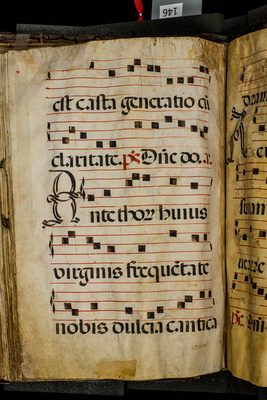 146
est casta generatio cū
claritate. ps̄ Dn̄e do. a.
Ante thorū huius
virginis frequētate
nobis dulcia cantica